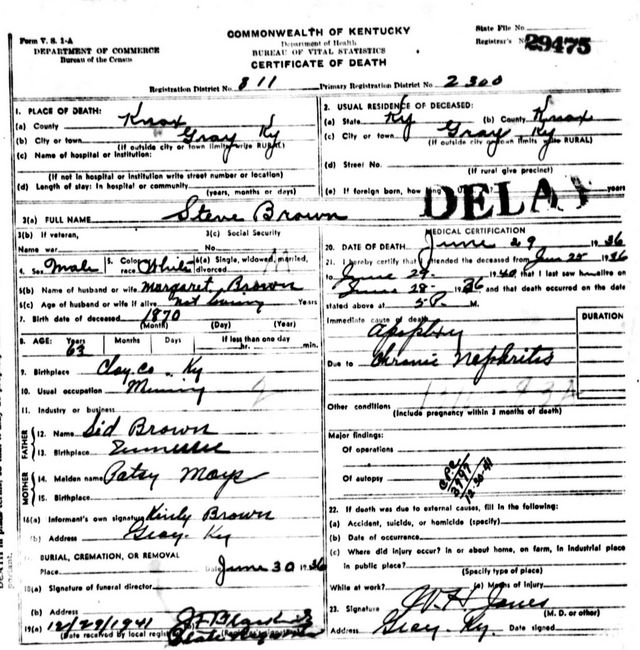 COMMONWEALTH OF KENTUCKY
Department of Health
BUREAU OF VITAL STATISTICS
CERTIFICATE OF DEATH
Form V. S. 1-A
DEPARTMENT OF COMMERCE
Bureau of the Census
State File No.
Registrar's No. 29475
Registration District No. 811 Primary Registration District No. 2300
1. PLACE OF DEATH:
(a) County Knox
(b) City or town Gray Ky
(If outside city or town limits write RURAL)
(c) Name of hospital or institution:
(If not in hospital or institution write street number or location)
(d) Length of stay: In hospital or community
(years, months or days)
2. USUAL RESIDENCE OF DECEASED:
(a) State Ky (b) County Knox
(c) City or town Gray Ky
(If outside city or town limits write RURAL)
(d) Street No.
(If rural give precinct)
(e) If foreign born, how long years
DELAY
3(a) FULL NAME Steve Brown
3(b) If veteran, 3(c) Social Security
Name war No.
4. Sex Male 5. Color race White 6(a) Single, widowed, married, divorced M
6(b) Name of husband or wife Margaret Brown
6(c) Age of husband or wife if alive Not living Years
7. Birth date of deceased 1870
(Month) (Day) (Year)
8. AGE: Years Months Days If less than one day
63 hr. min.
9. Birthplace Clay Co. Ky
10. Usual occupation Mining
11. Industry or business
FATHER
12. Name Sid Brown
13. Birthplace Tennessee
MOTHER
14. Maiden name Patsy Mays
15. Birthplace
16(a) Informant's own signature Brown
(b) Address Gray, Ky
17. BURIAL, CREMATION, OR REMOVAL
Place Date June 30 1936
18(a) Signature of funeral director
(b) Address
19(a) 12/29/1941
(Date received by local registrar) (Registrar's signature)
MEDICAL CERTIFICATION
20. DATE OF DEATH June 29 1936
21. I hereby certify that I attended the deceased from Jun 25 1936
to June 29 1940 that I last saw him alive on
June 28 1936 and that death occurred on the date
stated above at 5 P. M.
DURATION
Immediate cause of death
Apoplexy
Due to Chronic Nephritis
Other conditions
(Include pregnancy within 3 months of death)
Major findings:
Of operations
Of autopsy
CPR
3979
12-30-41
22. If death was due to external causes, fill in the following:
(a) Accident, suicide, or homicide (specify)
(b) Date of occurrence
(c) Where did injury occur? in or about home, on farm, in industrial place
in public place?
(Specify type of place)
While at work? (e) Means of injury
23. Signature W. H. Jones
(M. D. or other)
Address Gray Ky. Date signed